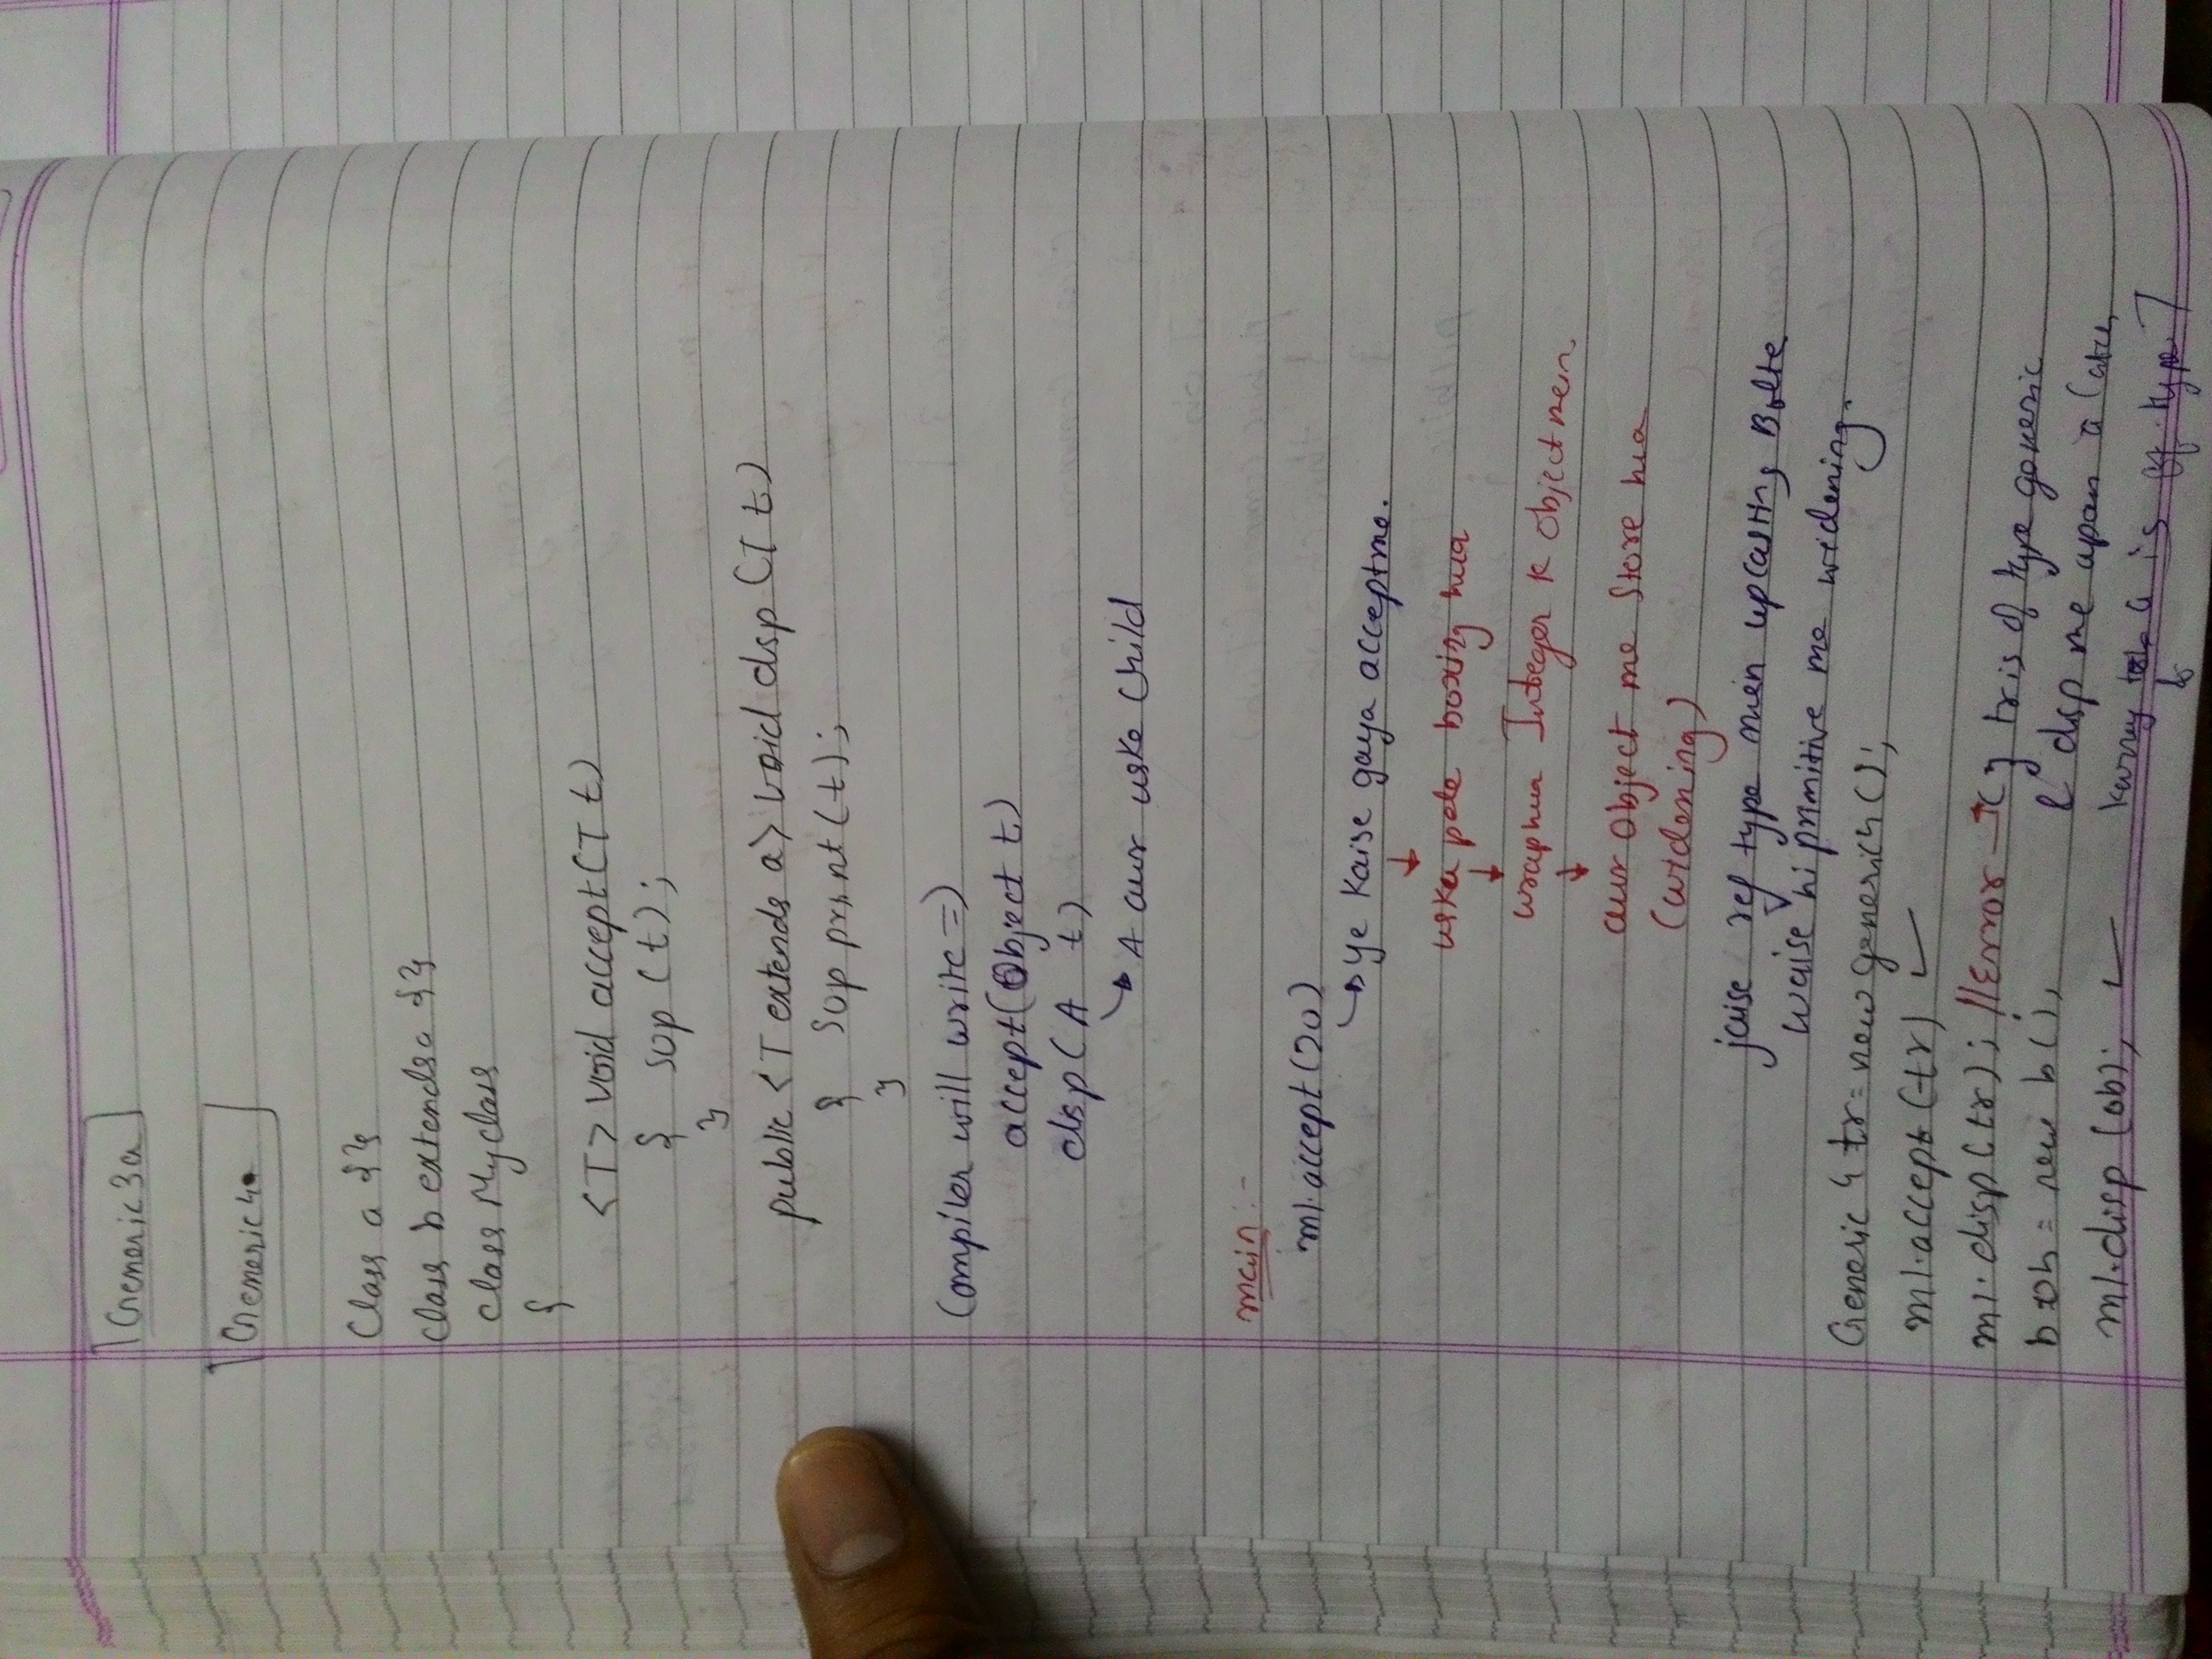 Generic 3a
Generic 4
Class a {}
class b extends a {}
class Myclass
{
<T> void accept(T t)
{ sop (t);
}
public <T extends a> void disp (T t)
{ sop print(t);
}
Compiler will write =>
accept(Object t)
disp(A t)
A aur uske Child
main :-
m1.accept(20)
ye kaise gaya accept me.
uska pele boxing hua
wrap hua Integer k object mein.
aur object me Store hua
(widening)
jaise ref type mein upcasting Bolte
waise hi primitive me widening.
Generic 4 tr = new generic4 ();
m1.accept (tr) ✓
m1.disp(tr); //Error → tr is of type generic
b ob = new b();
& disp me apan a
m1.disp (ob); ✓
a is of type